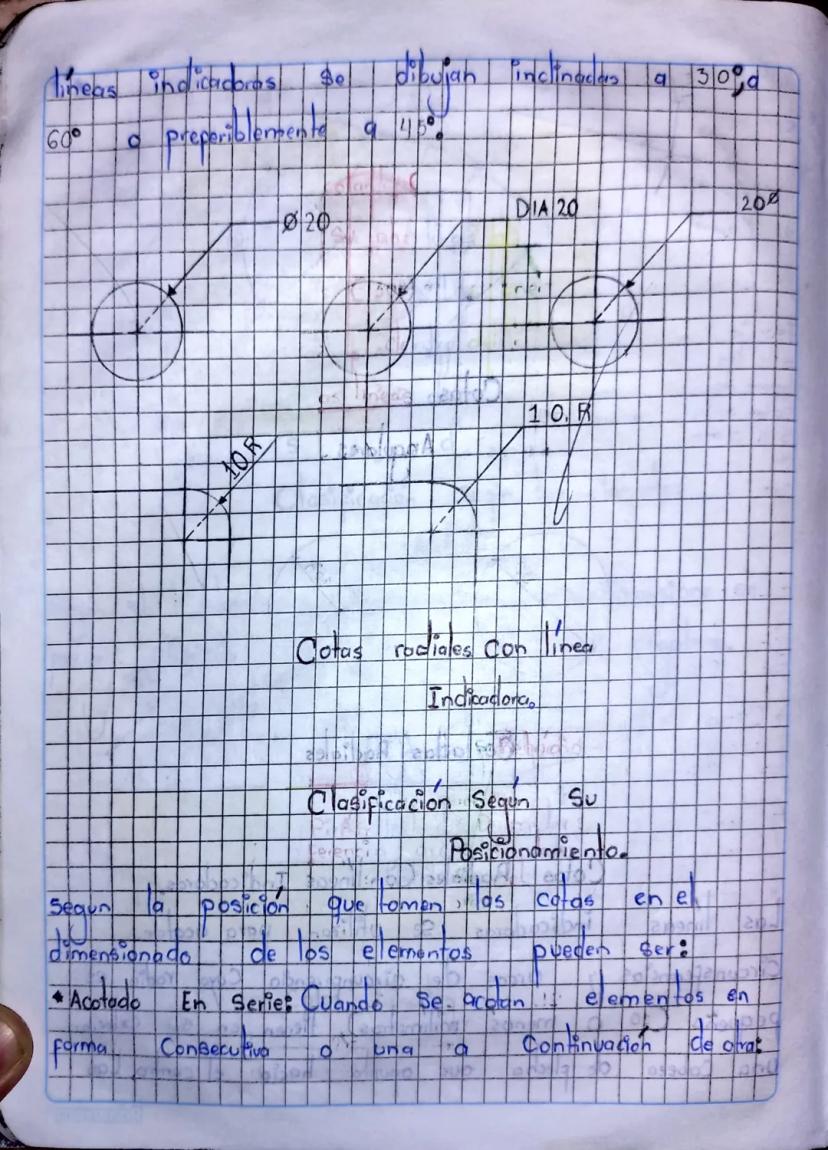 líneas indicadoras se dibujan inclinadas a 30°, a
60° o preferiblemente a 45°.
Ø 20
DIA 20
20Ø
10.R
10.R
Cotas radiales con línea
Indicadora.
Clasificación Según Su
Posicionamiento.
Según la posición que tomen las cotas en el
dimensionado de los elementos pueden ser:
* Acotado En Serie: Cuando se acotan elementos en
forma Consecutiva o una a Continuación de otra: